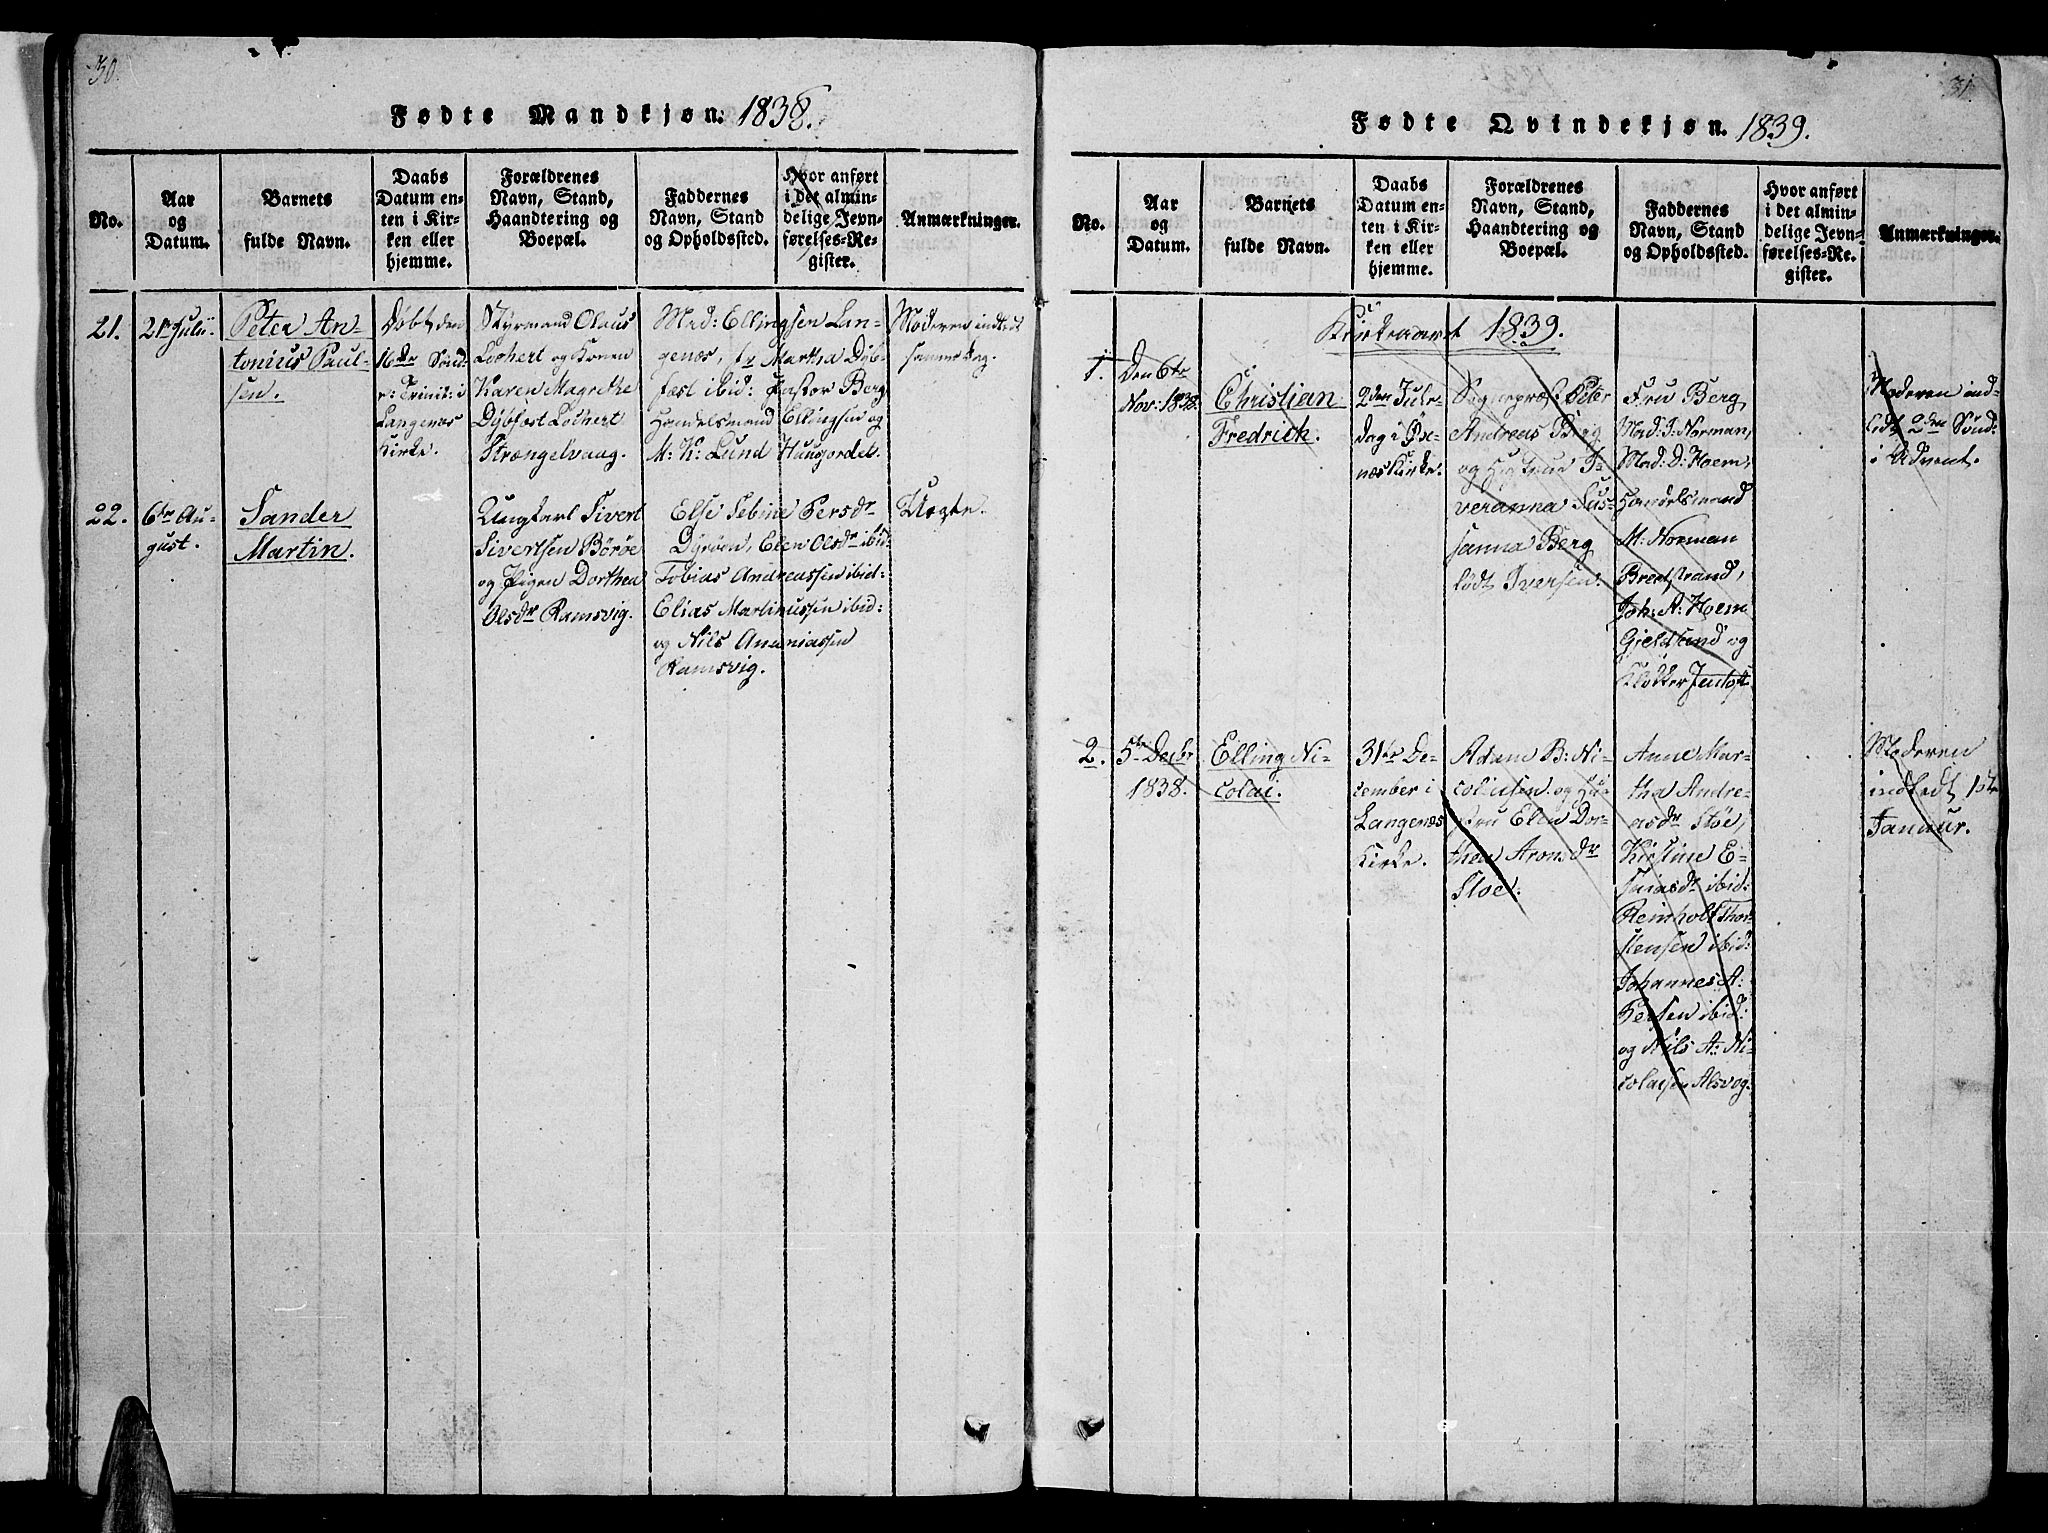 30.
Fødte Mandkjøn. 1838.
No.
Aar
og
Datum.
Barnets
fulde Navn.
Daabs
Datum en-
ten i Kir-
ken eller
hjemme.
Forældrenes
Navn, Stand,
Haandtering og
Boepæl.
Faddernes
Navn, Stand
og Opholdssted.
Hvor anført
i det almin-
delige Jevn-
førelses-Re-
gister.
Anmærkninger.
21.
21de Julii
Peter An-
tonius Paul-
sen.
Døbt den
16de Sønd:
e: Trinit: i
Langenæs
Kirke.
Styrmand Olaus
Lochert og Konen
Karen Magrethe
Dybfest Lochert
Strængelvaag.
Mad: Ellingsen Lan-
genæs, Martha Dyb-
fest ibid: Pastor Berg
Handelsmand Ellingsen og
M: K: Lund Haugordet.
Moderen indledt
samme dag.
22.
6te Au-
gust.
Sander
Martin.
Ungkarl Sivert
Sivertsen Børøe
og Pigen Dorthea
Olsdr Ramsvig.
Else Sebine Persdr
Dyrøen, Elen Olsdr ibid-
Tobias Andreassen ibid-
Elias Martinussen ibid-
og Nils Ananiassen
Ramsvig.
Uægte.
31.
Fødte Qvindekjøn. 1839.
No.
Aar
og
Datum.
Barnets
fulde Navn.
Daabs
Datum en-
ten i Kir-
ken eller
hjemme.
Forældrenes
Navn, Stand,
Haandtering og
Boepæl.
Faddernes
Navn, Stand
og Opholdssted.
Hvor anført
i det almin-
delige Jevn-
førelses-Re-
gister.
Anmærkninger.
Kirkeaaret 1839.
1.
Den 6te
Nov: 1838.
Christian
Fredrich.
2den Jule-
dag i Øx-
næs Kirke.
Sognepræst Peter
Andreas Berg
og Hustrue I-
veranna Sus-
sanna Berg
født Iversen.
Fru Berg,
Mad: J: Norman,
Mad: D: Hoem,
Handelsmand
M: Norman
Bredstrand,
Joh: A: Hoem
Gjeldsund og
Klokker Jentoft
Moderen ind-
ledt 2den Sønd:
i Advent.
2.
5te Decbr
1838.
Elling Ni-
colai.
31te De-
cember i
Langenæs
Kirke.
Adam B: Ni-
colaisen og Hu-
stru Elen Dor-
thea Aronsdr
Støe.
Anne Mar-
tha Andre-
asdr Støe,
Kirstine E-
saiasdr ibid:
Reinholt Thor-
stensen ibid:
Johannes A:
ibid:
og Nils A: Ni-
colaisen Alsvog.
Moderen
indledt 1ste
Januar.